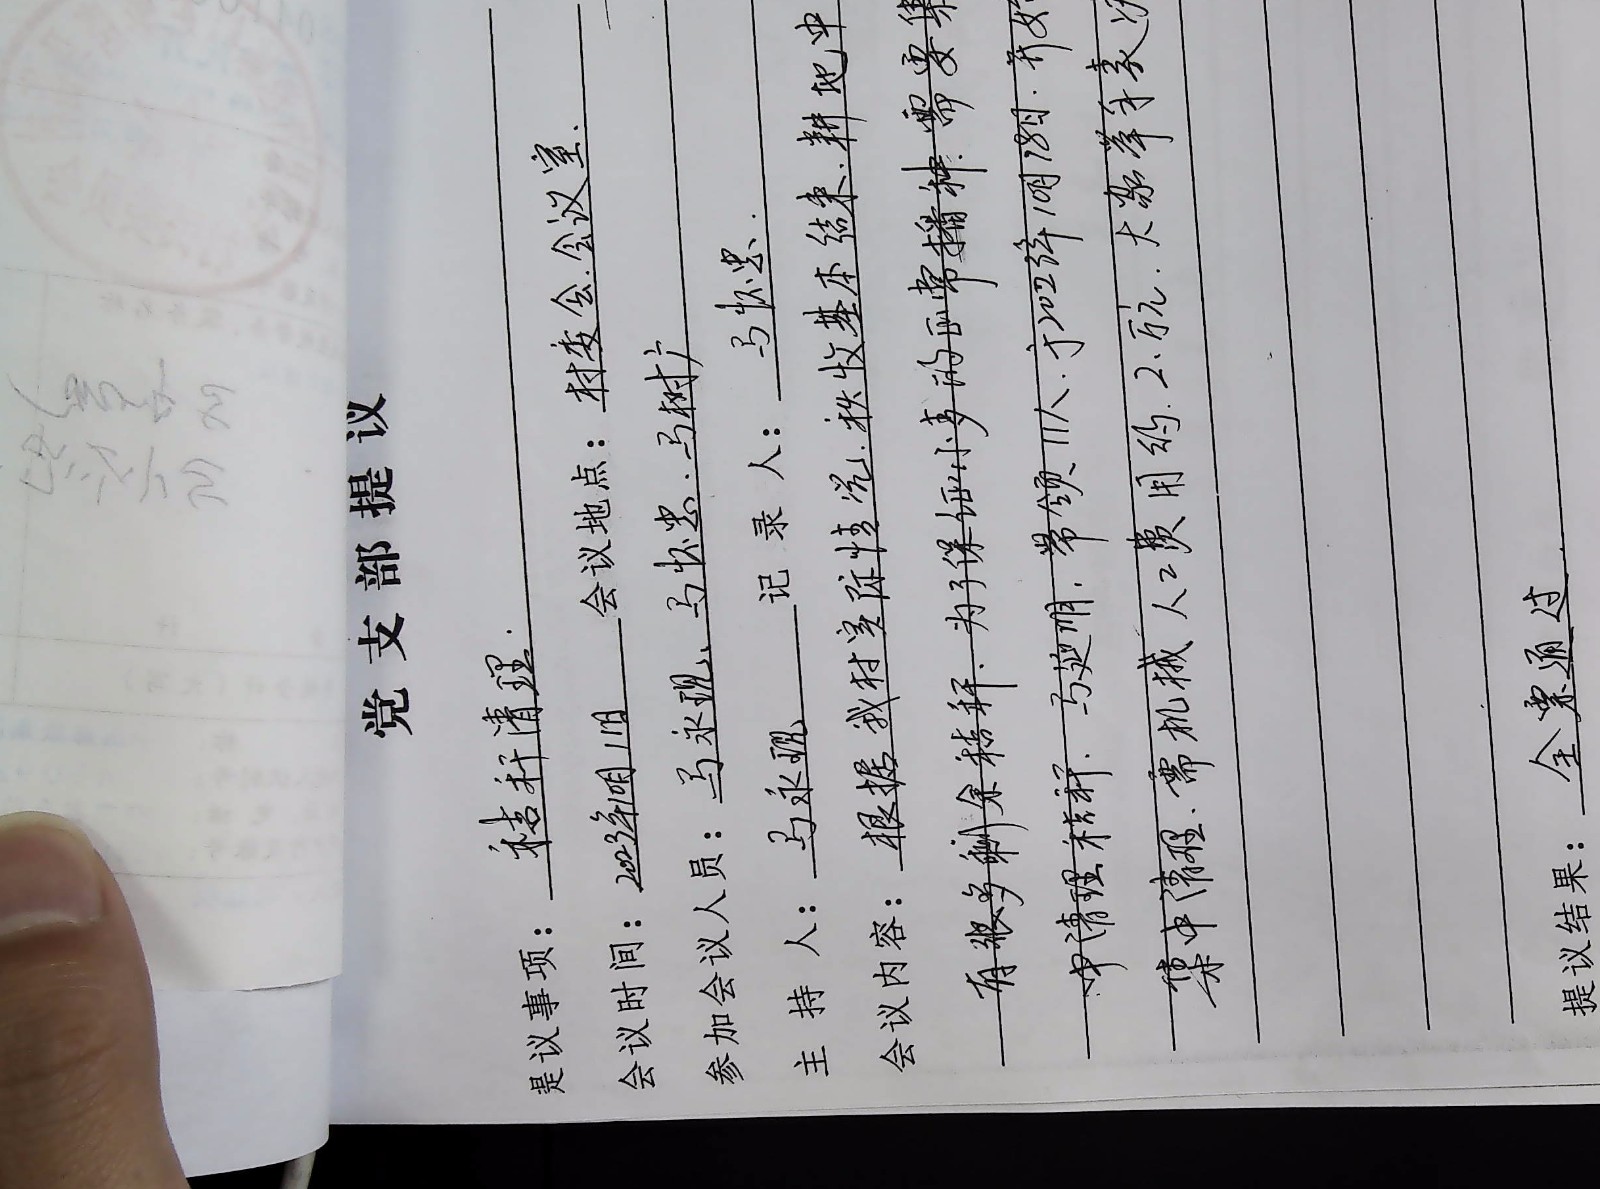 党支部提议
是议事项：秸秆清理.
会议时间：2023年10月11日 会议地点：村委会会议室.
参加会议人员：马永现、马怀忠.马树广
主 持 人：马永现 记 录 人：马怀忠.
会议内容：根据我村实际情况.秋收基本结束.耕地中
有很多剩余秸秆.为了保证小麦的正常播种.需要集
中清理秸秆.马延明.带领11人.于2023年10月18日.开始
集中清理.需机械人工费用约.2.万元.大家举手表决
提议结果：全票通过.